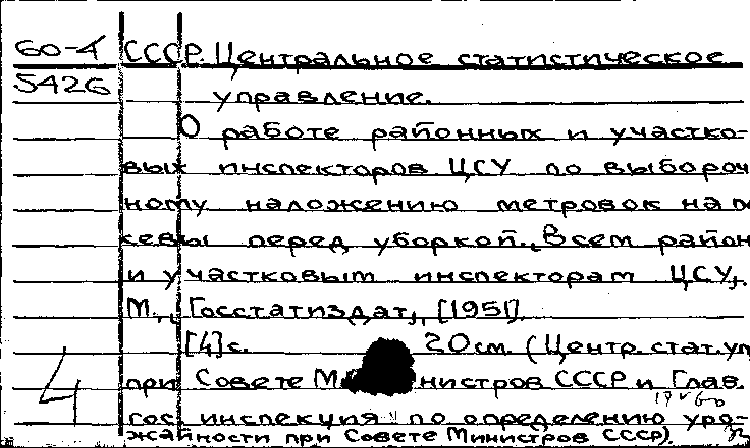 60-4 СССР. Центральное статистическое
5426 управление.
О работе районных и участко-
вых инспекторов ЦСУ по выбороч
ному наложению метровок на п
севы перед уборкой. Всем район
и участковым инспекторам ЦСУ.
М., Госстатиздат, [1951].
[4] с. 20 см. (Центр. стат. уп
при Совете Министров СССР и Глав.
4 гос. инспекция по определению уро-
жайности при Совете Министров СССР).